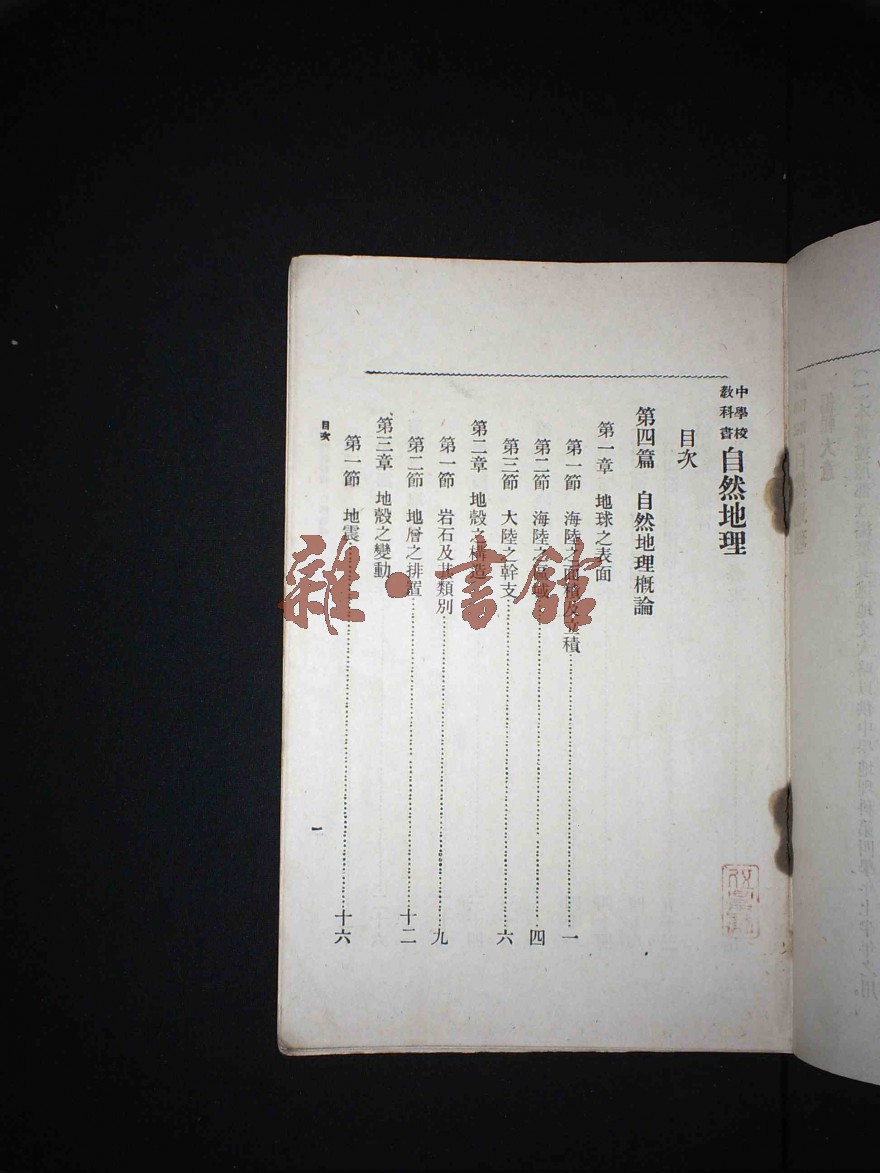 中學校
教科書 自然地理
目次
第四篇 自然地理概論
第一章 地球之表面
第一節 海陸之面積及立積 一
第二節 海陸之區域 四
第三節 大陸之幹支 六
第二章 地殼之構造
第一節 岩石及其類別 九
第二節 地層之排置 十二
第三章 地殼之變動
第一節 地震 十六
目次
一
雜·書館